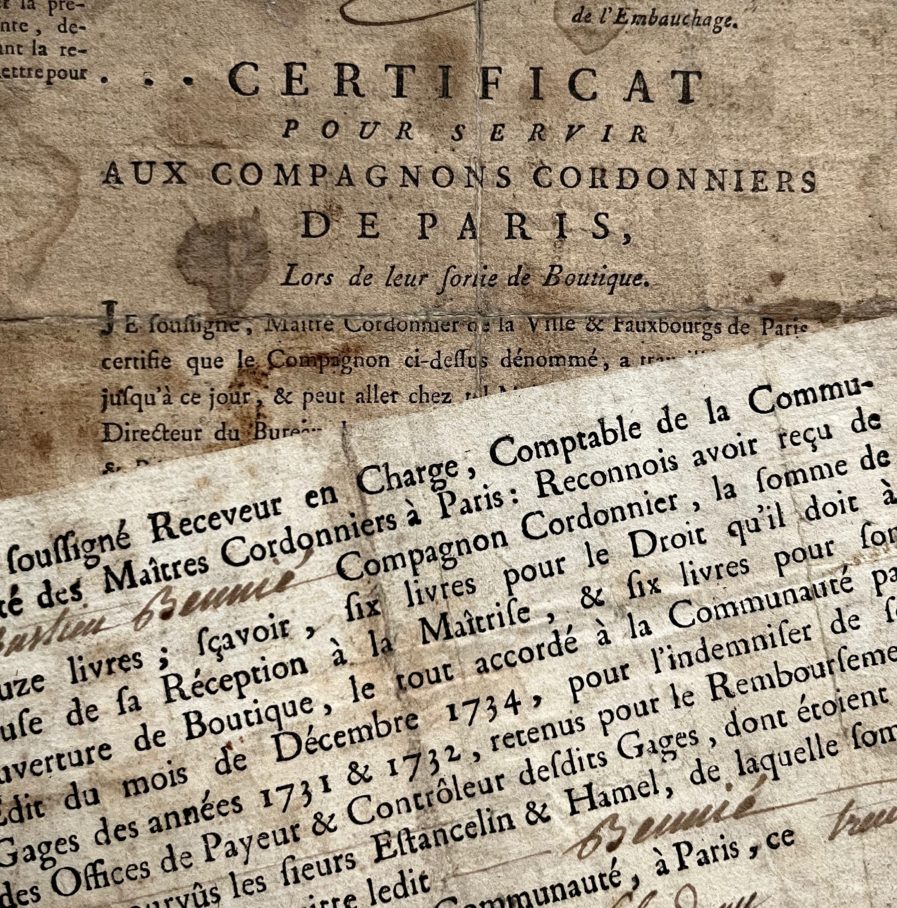 la pré-
nte, de-
ant la re-
ettre pour
de l'Embauchage.
. . . CERTIFICAT
POUR SERVIR
AUX COMPAGNONS CORDONNIERS
DE PARIS,
Lors de leur ſortie de Boutique.
JE ſouſſigné, Maître Cordonnier de la Ville & Fauxbourgs de Paris
certifie que le Compagnon ci-deſſus dénommé, a
juſqu'à ce jour, & peut aller chez
Directeur du Bureau
&
ſouſſigné Receveur en Charge, Comptable de la Commu-
té des Maîtres Cordonniers à Paris: Reconnois avoir reçu de
baſtien Bennié Compagnon Cordonnier, la ſomme de
uze livres; ſçavoir, ſix livres pour le Droit qu'il doit à
uſe de ſa Réception à la Maîtriſe, & ſix livres pour ſon
uverture de Boutique, le tout accordé à la Communauté pa
Édit du mois de Décembre 1734, pour l'indemniſer de ſ
Gages des années 1731 & 1732, retenus pour le Rembourſeme
des Offices de Payeur & Contrôleur deſdits Gages, dont étoient
ourvûs les ſieurs Eſtancelin & Hamel, de laquelle ſom
ledit Bennié
ommunauté, à Paris, ce